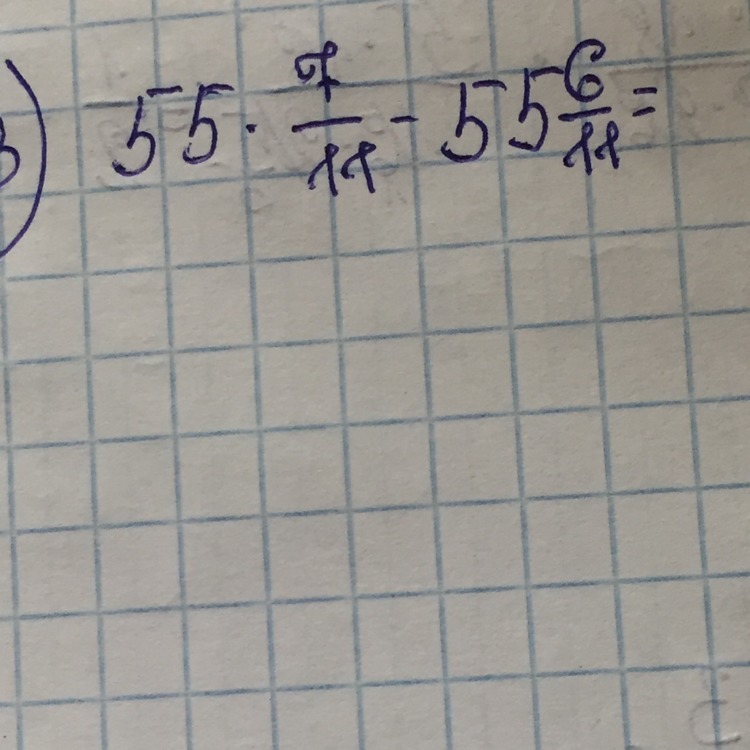 ) 55 · 7/11 - 55 6/11 =